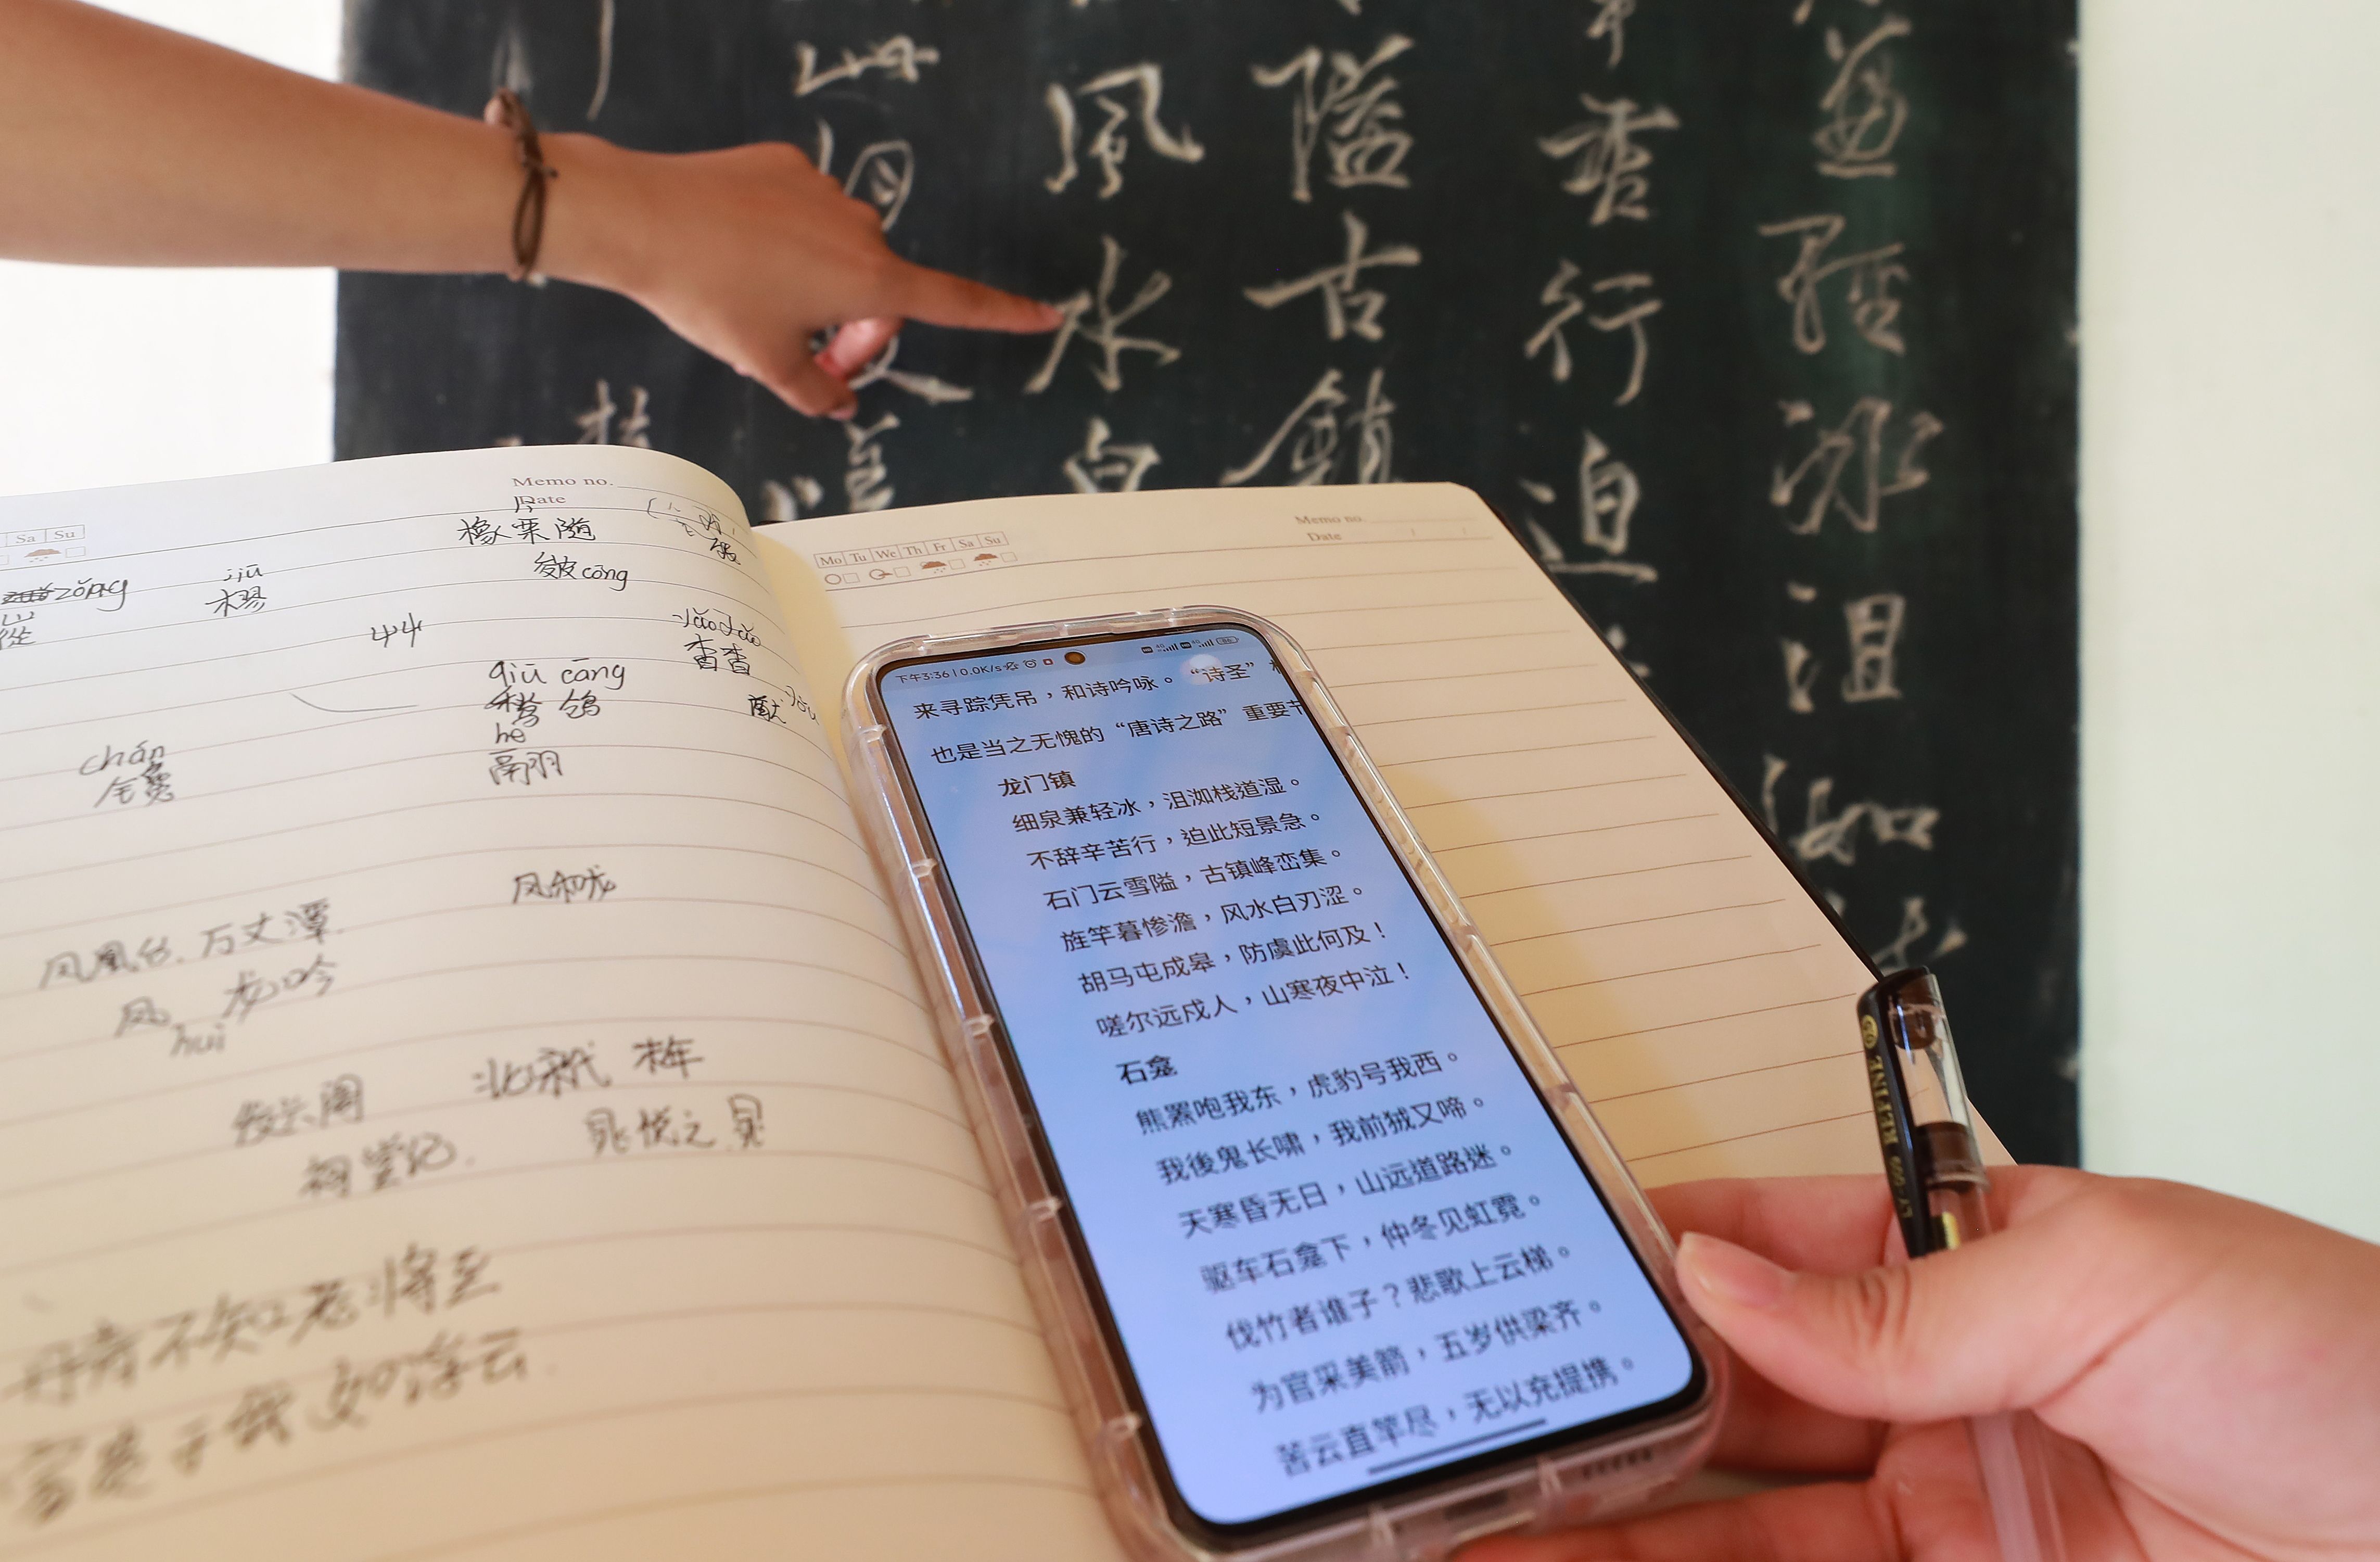 兼輕冰沮洳
辛苦行迫
隘古鎮
風水白
此何及嗟
Memo no.
Date
Sa Su
橡栗随
皴 cōng
zǒng
jiū
樛
qiū cāng
鹙鸧
hé
鬲羽
chán
凤和龙
凤凰台、万丈潭
凤 龙吟
huì
发兴阁
祠堂记
北
之
丹青不知老将至
富贵于我如浮云
Memo no.
Date
Mo Tu We Th Fr Sa Su
下午3:36 | 0.0K/s
来寻踪凭吊，和诗吟咏。“诗圣”
也是当之无愧的“唐诗之路”重要节
龙门镇
细泉兼轻冰，沮洳栈道湿。
不辞辛苦行，迫此短景急。
石门云雪隘，古镇峰峦集。
旌竿暮惨澹，风水白刃涩。
胡马屯成皋，防虞此何及！
嗟尔远戍人，山寒夜中泣！
石龛
熊罴咆我东，虎豹号我西。
我後鬼长啸，我前狨又啼。
天寒昏无日，山远道路迷。
驱车石龛下，仲冬见虹霓。
伐竹者谁子？悲歌上云梯。
为官采美箭，五岁供梁齐。
苦云直簳尽，无以充提携。